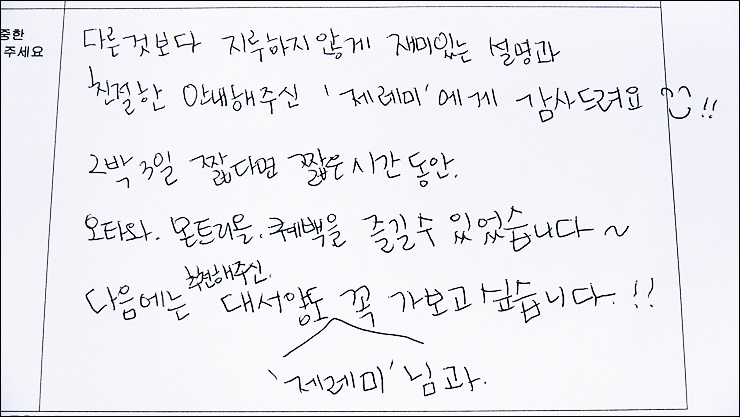 중한
주세요
다른것보다 지루하지않게 재미있는 설명과
친절한 안내해주신 '제레미'에게 감사드려요 !!
2박 3일 짧다면 짧은 시간 동안.
오타와. 몬트리올. 퀘백을 즐길수 있었습니다 ~
추천해주신.
다음에는 대서양도 꼭 가보고 싶습니다. !!
'제레미' 님과.